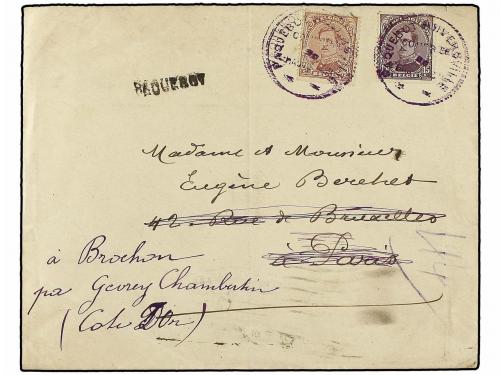 PAQUEBOT
PAQUEBOT
Madame et Monsieur
Eugène Berchet
42 - Rue de Bruxelles
à Paris
à Brochon
par Gevrey Chambertin
(Cote D'Or)